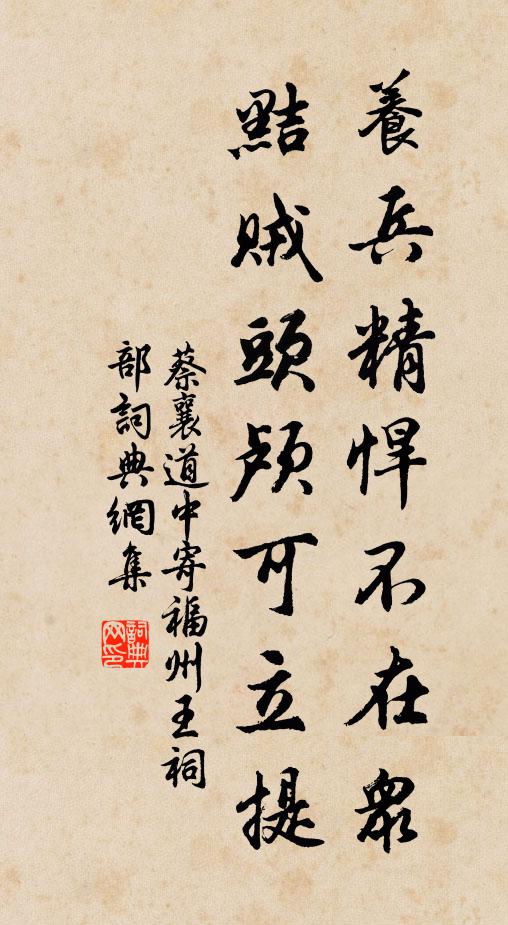 養兵精悍不在眾
黠賊頭顱可立提
蔡襄道中寄福州王祠
部詞典網集
詞典網印